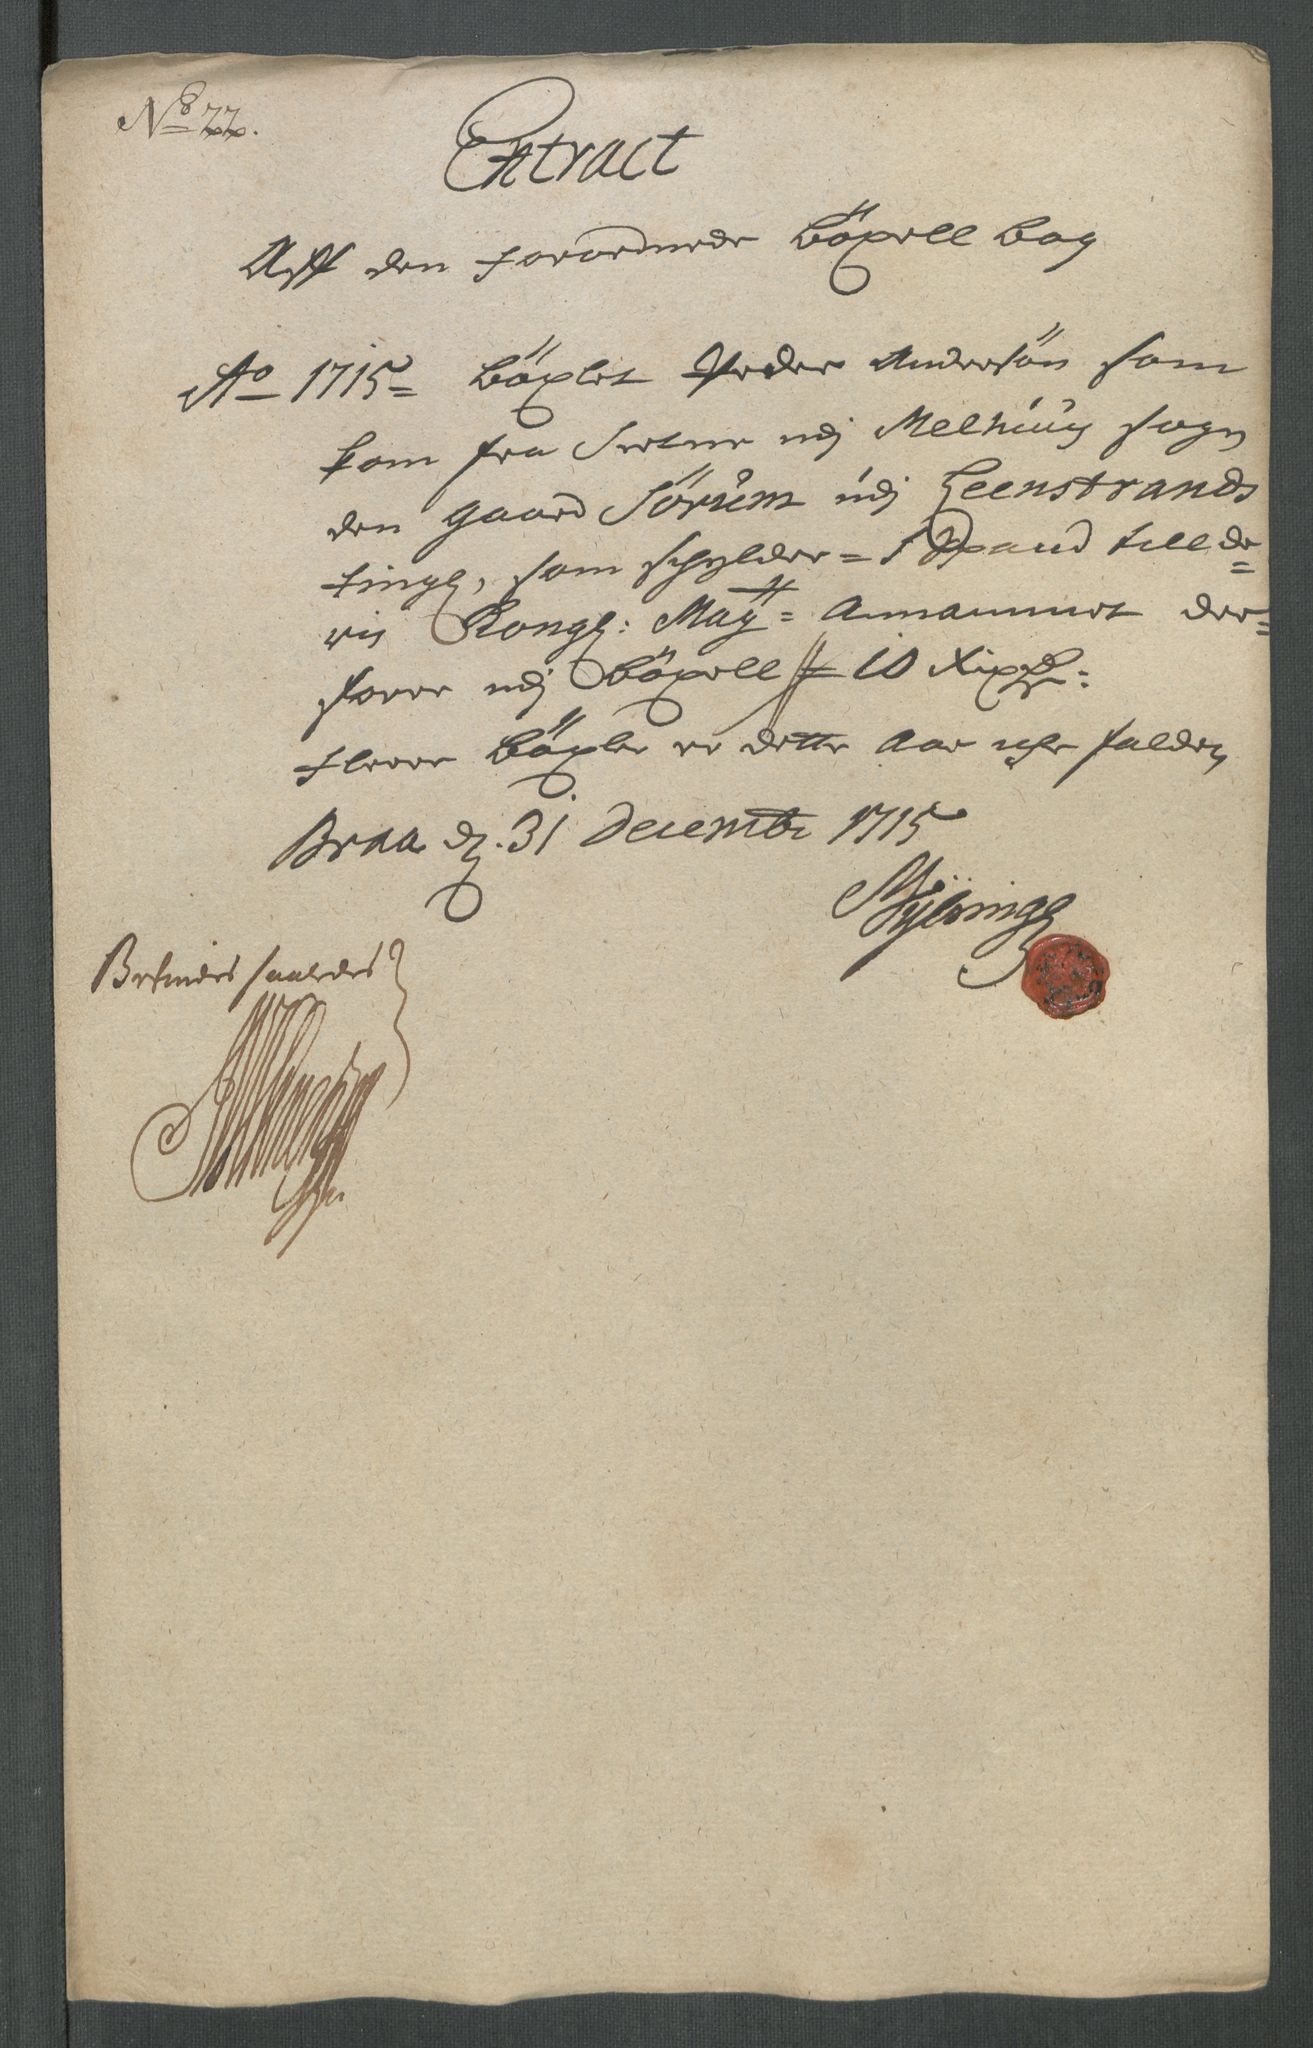 No 22.
Extract
Aff den forordnede böxell bog
Ao 1715 = böxlet Peder Andersön som
kom fra udj Melhuus sogn
den gaard Sörum udj Leenstrands
tingl, som schylder = 1 Spand till de=
ris Kongl: May = Annammet der=
forre udj böxell 10 Rixdlr:
flerre böxler er dette Aar iche falden
Braa d. 31 Decembr 1715
Befindes saaledes